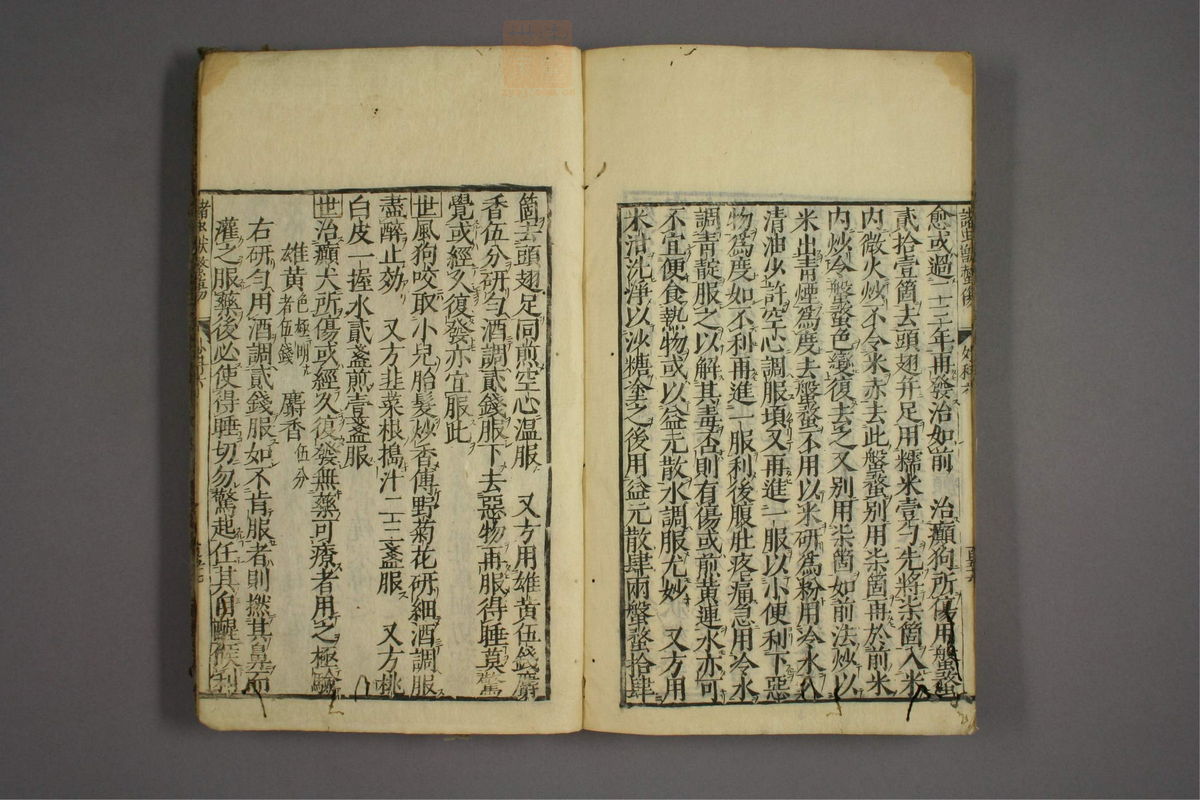 愈或過一二三年再發治如前　治癲狗所傷用盤蝥
貳拾壹箇去頭翅并足用糯米壹勺先將柒箇入米
內微火炒不令米赤去此盤蝥别用柒箇再於前米
內炒令盤蝥色變復去之又别用柒箇如前法炒以
米出青煙爲度去盤蝥不用以米研爲粉用冷水入
清油少許空心調服頃又再進一服以小便利下惡
物爲度如不利再進一服利後腹肚疼痛急用冷水
調青靛服之以解其毒否則有傷或煎黃連水亦可
不宜便食熱物或以益元散水調服尤妙　又方用
米泔洗淨以沙糖塗之後用益元散肆兩盤蝥拾肆
箇去頭翅足同煎空心温服　又方用雄黃伍錢麝
香伍分研勻酒調貳錢服下去惡物再服得睡莫驚
覺或經久復發亦宜服此
世風狗咬取小兒胎髮炒香傅野菊花研細酒調服
盡醉止効　又方韭菜根搗汁二三盞服　又方桃
白皮一握水貳盞煎壹盞服
世治癲犬所傷或經久復發無藥可療者用之極驗
雄黃色極明者伍錢　麝香伍分
右研勻用酒調貳錢服如不肯服者則撚其鼻而
灌之服藥後必使得睡切勿驚起任其自醒候利